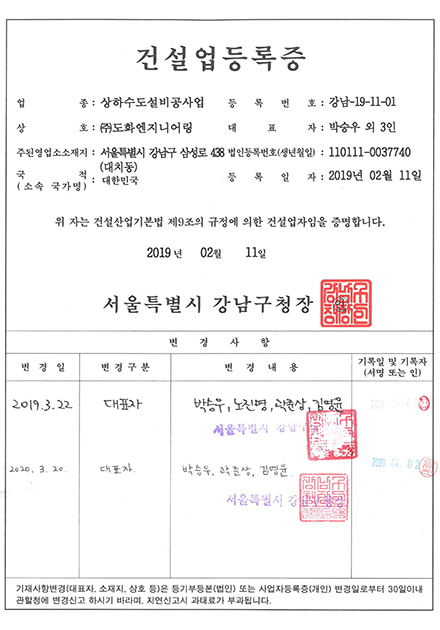 건설업등록증
업 종 : 상하수도설비공사업 등 록 번 호 : 강남-19-11-01
상 호 : ㈜도화엔지니어링 대 표 자 : 박승우 외 3인
주된영업소소재지 : 서울특별시 강남구 삼성로 438 법인등록번호(생년월일) : 110111-0037740
(대치동)
국 적 : 대한민국 등 록 일 자 : 2019년 02월 11일
(소속 국가명)
위 자는 건설산업기본법 제9조의 규정에 의한 건설업자임을 증명합니다.
2019년 02월 11일
서울특별시 강남구청장
변 경 사 항
변 경 일 변 경 구 분 변 경 내 용 기록일 및 기록자
(서명 또는 인)
2019.3.22 대표자 박승우, 노진명, 곽준상, 김영윤
서울특별시 강남구
2020. 3. 20. 대표자 박승우, 곽준상, 김영윤. 2020. 04. 02
서울특별시 강남구청장
기재사항변경(대표자, 소재지, 상호 등)은 등기부등본(법인) 또는 사업자등록증(개인) 변경일로부터 30일이내
관할청에 변경신고 하시기 바라며, 지연신고시 과태료가 부과됩니다.